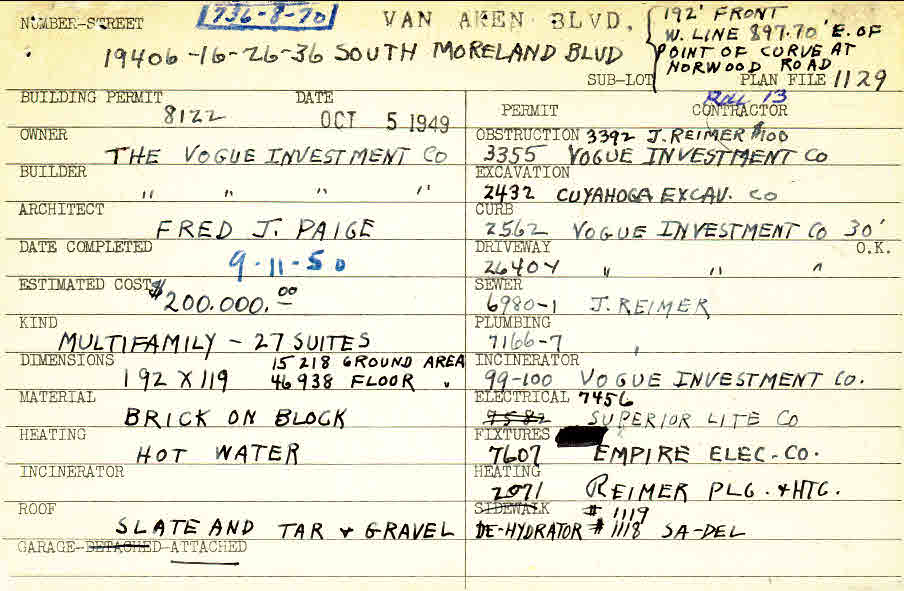 NUMBER-STREET 736-8-70 VAN AKEN BLVD.
19406-16-26-36 SOUTH MORELAND BLVD
192' FRONT
W. LINE 897.70' E. OF
POINT OF CURVE AT
NORWOOD ROAD
SUB-LOT PLAN FILE 1129
Roll 13
BUILDING PERMIT DATE
8122 OCT 5 1949
OWNER
THE VOGUE INVESTMENT CO
BUILDER
" " " "
ARCHITECT
FRED J. PAIGE
DATE COMPLETED
9-11-50
ESTIMATED COST $200.000.00
KIND
MULTIFAMILY - 27 SUITES
DIMENSIONS 15 218 GROUND AREA
192 X 119 46 938 FLOOR "
MATERIAL
BRICK ON BLOCK
HEATING
HOT WATER
INCINERATOR
ROOF
SLATE AND TAR & GRAVEL
GARAGE-DETACHED-ATTACHED
PERMIT CONTRACTOR
OBSTRUCTION 3392 J. REIMER $100
3355 VOGUE INVESTMENT CO
EXCAVATION
2432 CUYAHOGA EXCAV. CO
CURB
2562 VOGUE INVESTMENT CO 30'
DRIVEWAY O.K.
2640Y " " "
SEWER
6980-1 J. REIMER
PLUMBING
7166-7 "
INCINERATOR
99-100 VOGUE INVESTMENT CO.
ELECTRICAL 7456
9582 SUPERIOR LITE CO
FIXTURES
7607 EMPIRE ELEC. CO.
HEATING
2071 REIMER PLG. & HTG.
SIDEWALK # 1119
DE-HYDRATOR # 1118 SA-DEL